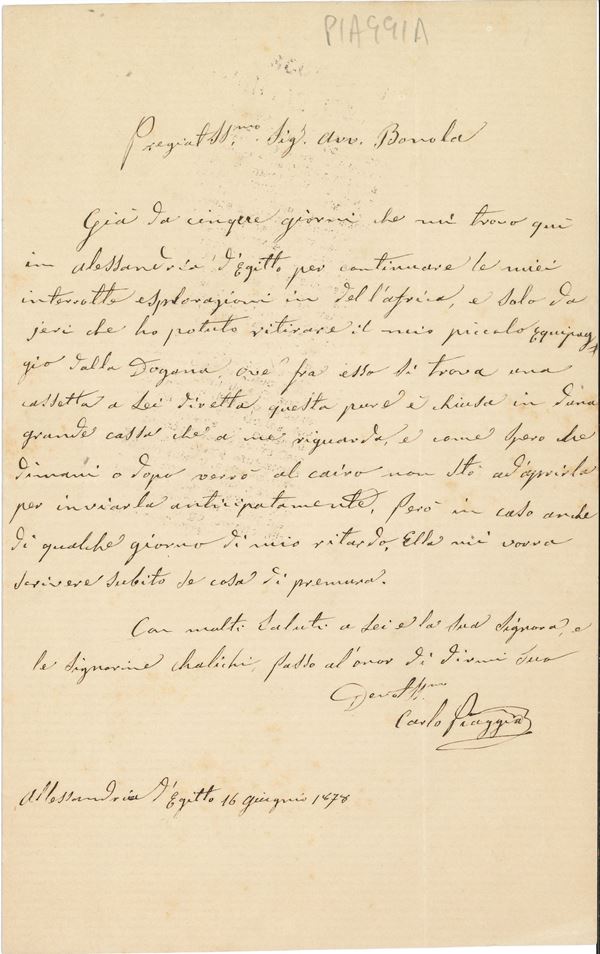 PIAGGIA
PregiatSS.mo Sigr. Avv. Bonola
Già da cinque giorni che mi trovo qui
in alessandria d'Egitto per continuare le miei
interrotte esplorazioni in dell'africa, e solo da
jeri che ho potuto ritirare il mio piccolo Equipag
gio dalla Dogana, ove fra esso si trova una
cassetta a Lei diretta, questa pure è chiusa in d'una
grande cassa che a me riguarda, e come spero che
dimani o dopo verrò al cairo non stò ad'aprirla
per inviarla anticipatamente. Però in caso anche
di qualche giorno di mio ritardo, Ella mi vorra
scrivere subito se cosa di premura.
Con molti saluti a Lei e la sua Signora, e
le Signorine passo al'onor di dirmi Suo
DevotSS.mo
Carlo Piaggia
Allessandria d'Egitto 16 giugnio 1878